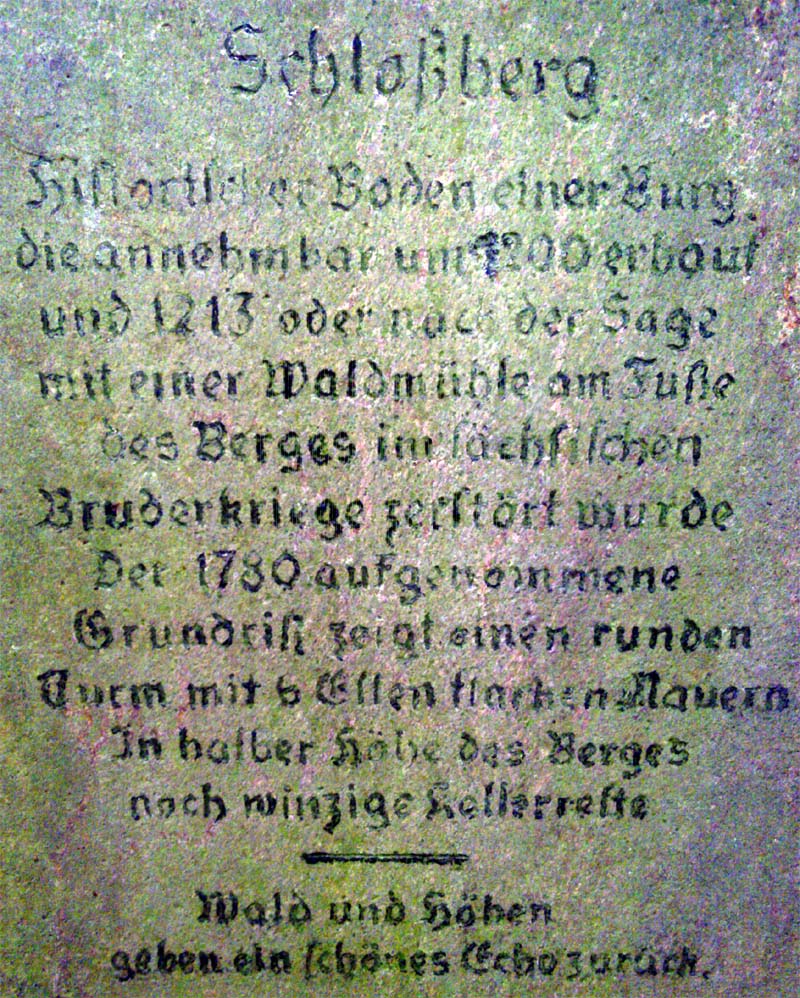 Schloßberg
Historischer Boden einer Burg,
die annehmbar um 1200 erbaut
und 1213 oder nach der Sage
mit einer Waldmühle am Fuße
des Berges im sächsischen
Bruderkriege zerstört wurde
Der 1780 aufgenommene
Grundriß zeigt einen runden
Turm mit 6 Ellen starken Mauern
In halber Höhe des Berges
noch winzige Kellerreste
Wald und Höhen
geben ein schönes Echo zurück.